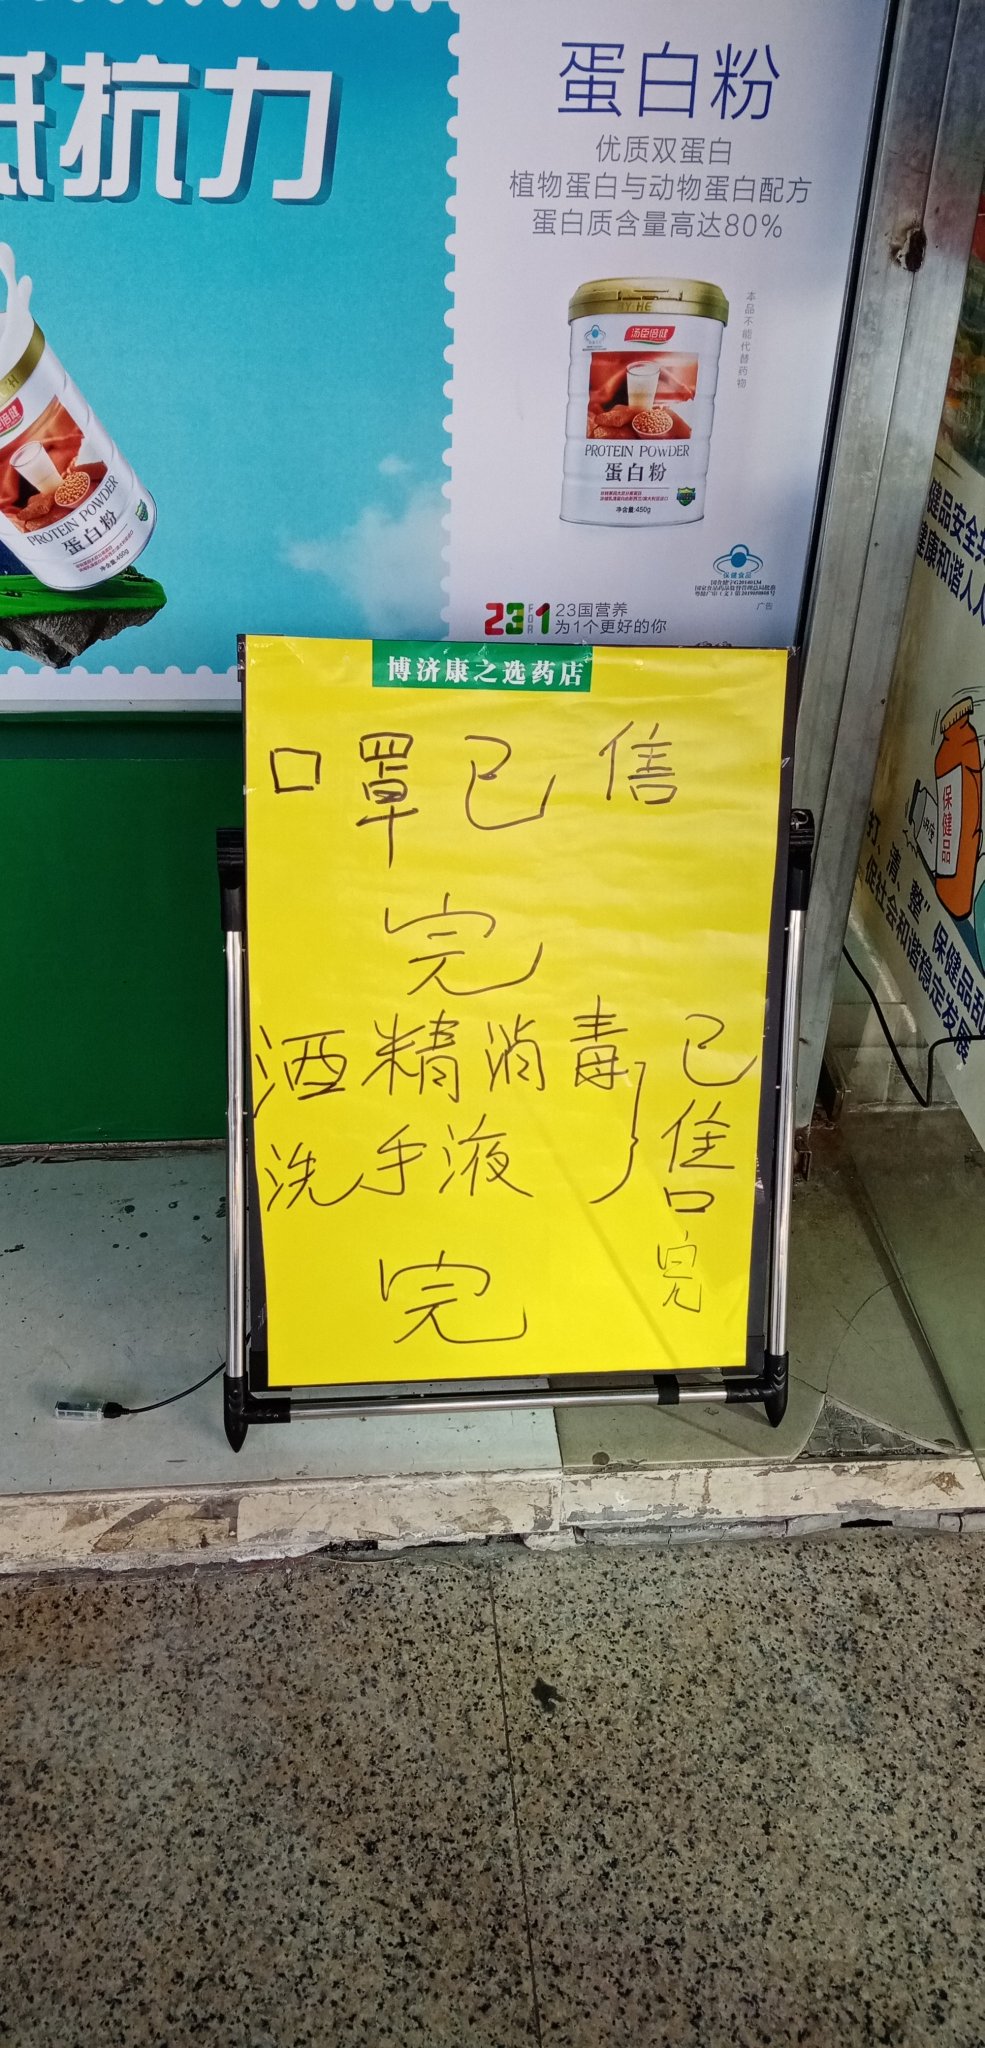 抵抗力
蛋白粉
优质双蛋白
植物蛋白与动物蛋白配方
蛋白质含量高达80%
本品不能代替药物
BY-HE
汤臣倍健
PROTEIN POWDER
蛋白粉
净含量:450g
倍健
PROTEIN POWDER
蛋白粉
净含量:450g
保健食品
广告
23 FOR 1
23国营养
为1个更好的你
博济康之选药店
口罩已售
完
酒精消毒
洗手液
已售完
完
保健品
健品安全
健康和谐人人
打、清、整"保健品乱
促社会和谐稳定发展